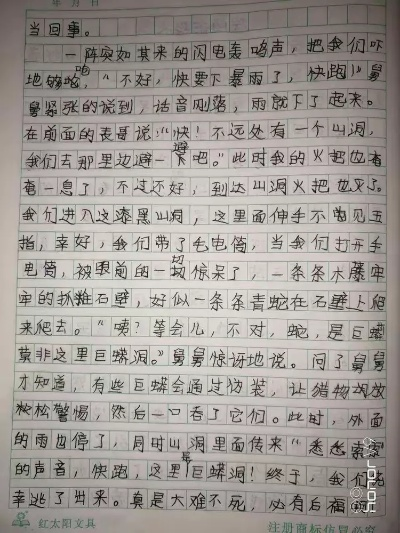 年 月 日
当回事。
一阵突如其来的闪电轰鸣声，把我们吓
地够呛，“不好，快要下暴雨了，快跑》舅
舅紧张的说到，话音刚落，雨就下了起来。
在前面的表哥说：“快！不远处有一个山洞，
我们去那里边避一下吧。”此时我的火把也奄
奄一息了，不过还好，到达山洞火把也灭了。
我们进入这漆黑山洞，这里面伸手不见五
指，幸好，我们带了毛电筒，当我们打开手
电筒，被眼前的一切惊呆了，一条条木藤牢
牢的抓粘石壁，好似一条条青蛇在石壁上爬
来爬去。“咦？等会儿，不对，蛇，是巨蟒
莫非这里巨蟒洞。”舅舅惊讶地说。问了舅舅
才知道，有些巨蟒会通过伪装，让猎物放
松警惕，然后一口吞了它们。此时，外面
的雨也停了，同时山洞里面传来“悉悉索索
的声音，快跑，这里是巨蟒洞！终于，我们
幸逃了出来。真是大难不死，必有后福
红太阳文具
注册商标仿冒必究
HONOR